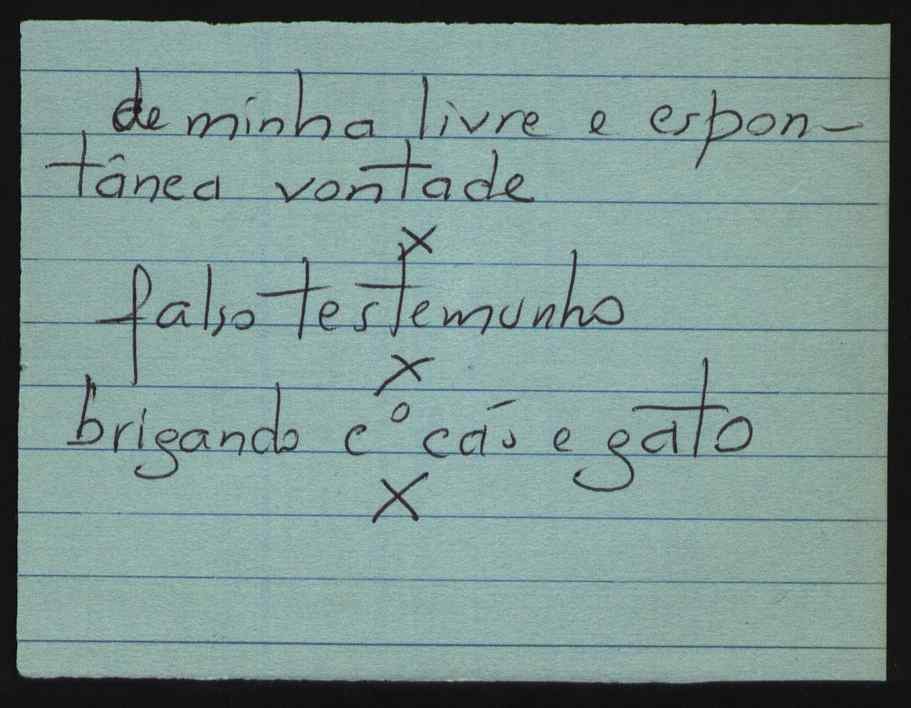 de minha livre e espon-
tânea vontade
x
falso testemunho
x
brigando cº cão e gato
x